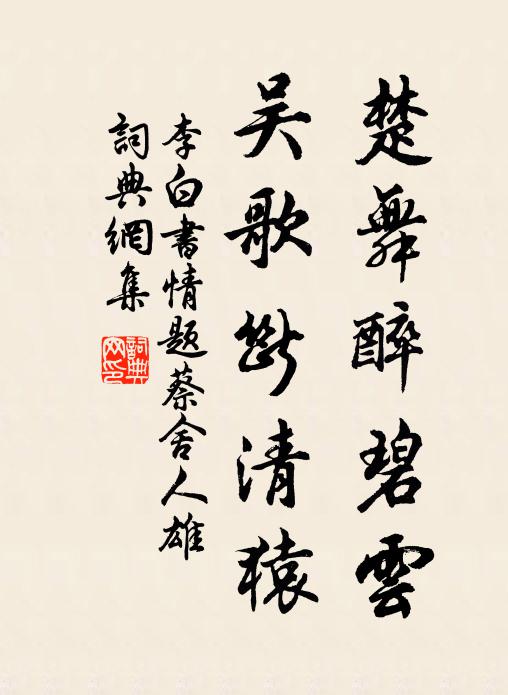 楚舞醉碧雲
吳歌斷清猿
李白書情題蔡舍人雄
詞典網集
詞典網印